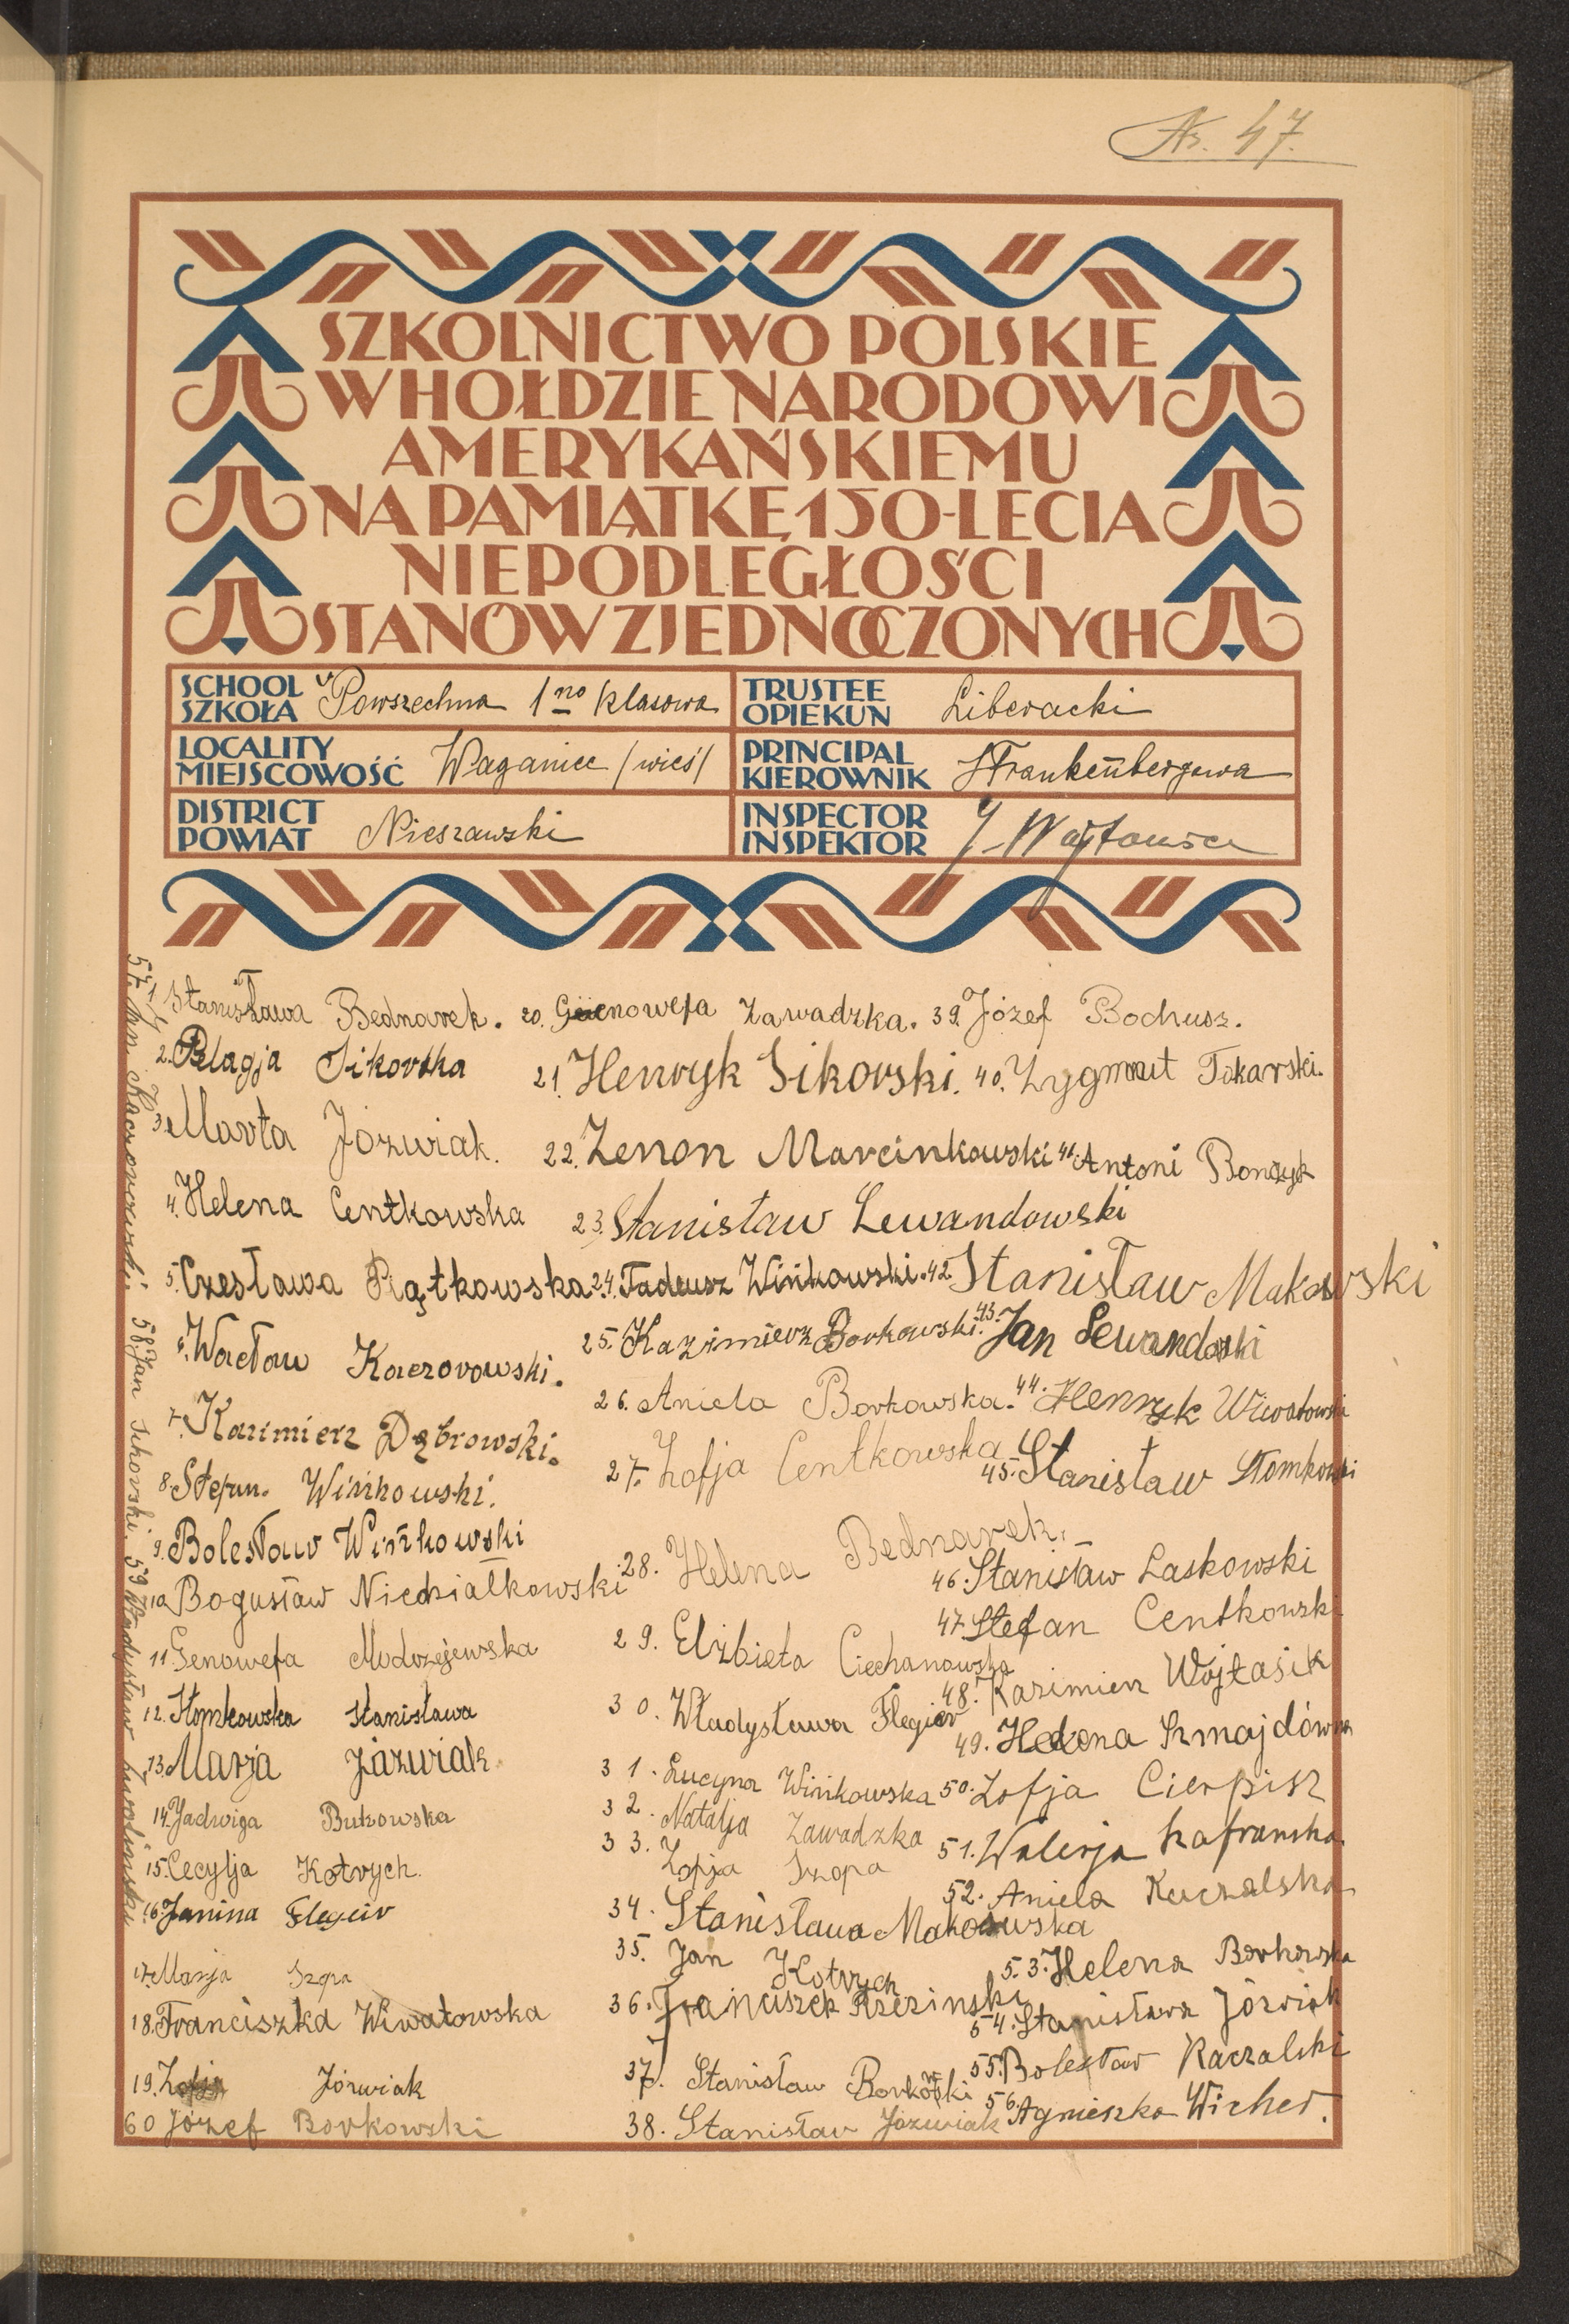 No. 47.
SZKOLNICTWO POLSKIE
W HOŁDZIE NARODOWI
AMERYKAŃSKIEMU
NA PAMIĄTKĘ 150-LECIA
NIEPODLEGŁOŚCI
STANÓW ZJEDNOCZONYCH
SCHOOL
SZKOŁA Powszechna 1no klasowa
TRUSTEE
OPIEKUN Liberacki
LOCALITY
MIEJSCOWOŚĆ Waganiec /wieś/
PRINCIPAL
KIEROWNIK Frankenbergowa
DISTRICT
POWIAT Nieszawski
INSPECTOR
INSPEKTOR
1. Stanisława Bednarek.
2. Pelagja Sikorska
3. Marta Józwiak.
4. Helena Centkowska
5. Czesława Piątkowska
6. Wacław Kaczorowski.
7. Kazimierz Dąbrowski.
8. Stefan. Wińkowski.
9. Bolesław Wińkowski
10. Bogusław Niedziałkowski
11. Genowefa Modrzejewska
12. Słomkowska Stanisława
13. Marja Józwiak
14. Jadwiga Butkowska
15. Cecylja Kotrych.
16. Janina Flegier
17. Marja Szopa
18. Franciszka Wiwatowska
19. Zofja Józwiak
60 Józef Borkowski
20. Genowefa Zawadzka.
21. Henryk Sikorski.
22. Zenon Marcinkowski
23. Stanisław Lewandowski
24. Tadeusz Wińkowski.
25. Kazimierz Borkowski.
26. Aniela Borkowska.
27. Zofja Centkowska
28. Helena Bednarek.
29. Elżbieta Ciechanowska
30. Władysława Flegier
31. Lucyna Wińkowska
32. Natalja Zawadzka
33. Zofja Szopa
34. Stanisława Makowska
35. Jan Kotrych
36. Franciszek Rzezinski
37. Stanisław Borkowski
38. Stanisław Józwiak
39. Józef Bochusz.
40. Zygmunt Tokarski.
41. Antoni Bonczyk
42. Stanisław Makowski
43. Jan Lewandoski
44. Henryk Wiwatowski
45. Stanisław Słomkowski
46. Stanisław Laskowski
47. Stefan Centkowski
48. Kazimierz Wojtasik
49. Helena Szmajdówna
50. Zofja Cierpisz
51. Walerja Szafranska
52. Aniela Kaczalska
53. Helena Borkowska
54. Stanisława Józwiak
55. Bolesław Kaczalski
56. Agnieszka Wicher.
57. Jan Kaczorowski 58. Jan Sikorski. 59 Władysław